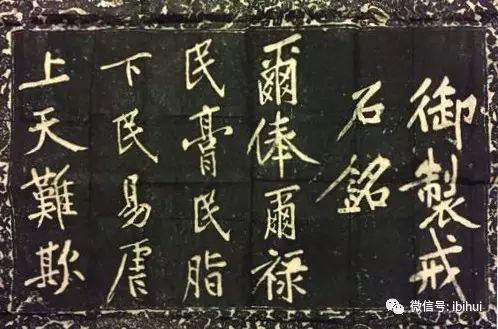 御製戒
石銘
爾俸爾祿
民膏民脂
下民易虐
上天難欺
微信号: ibihui